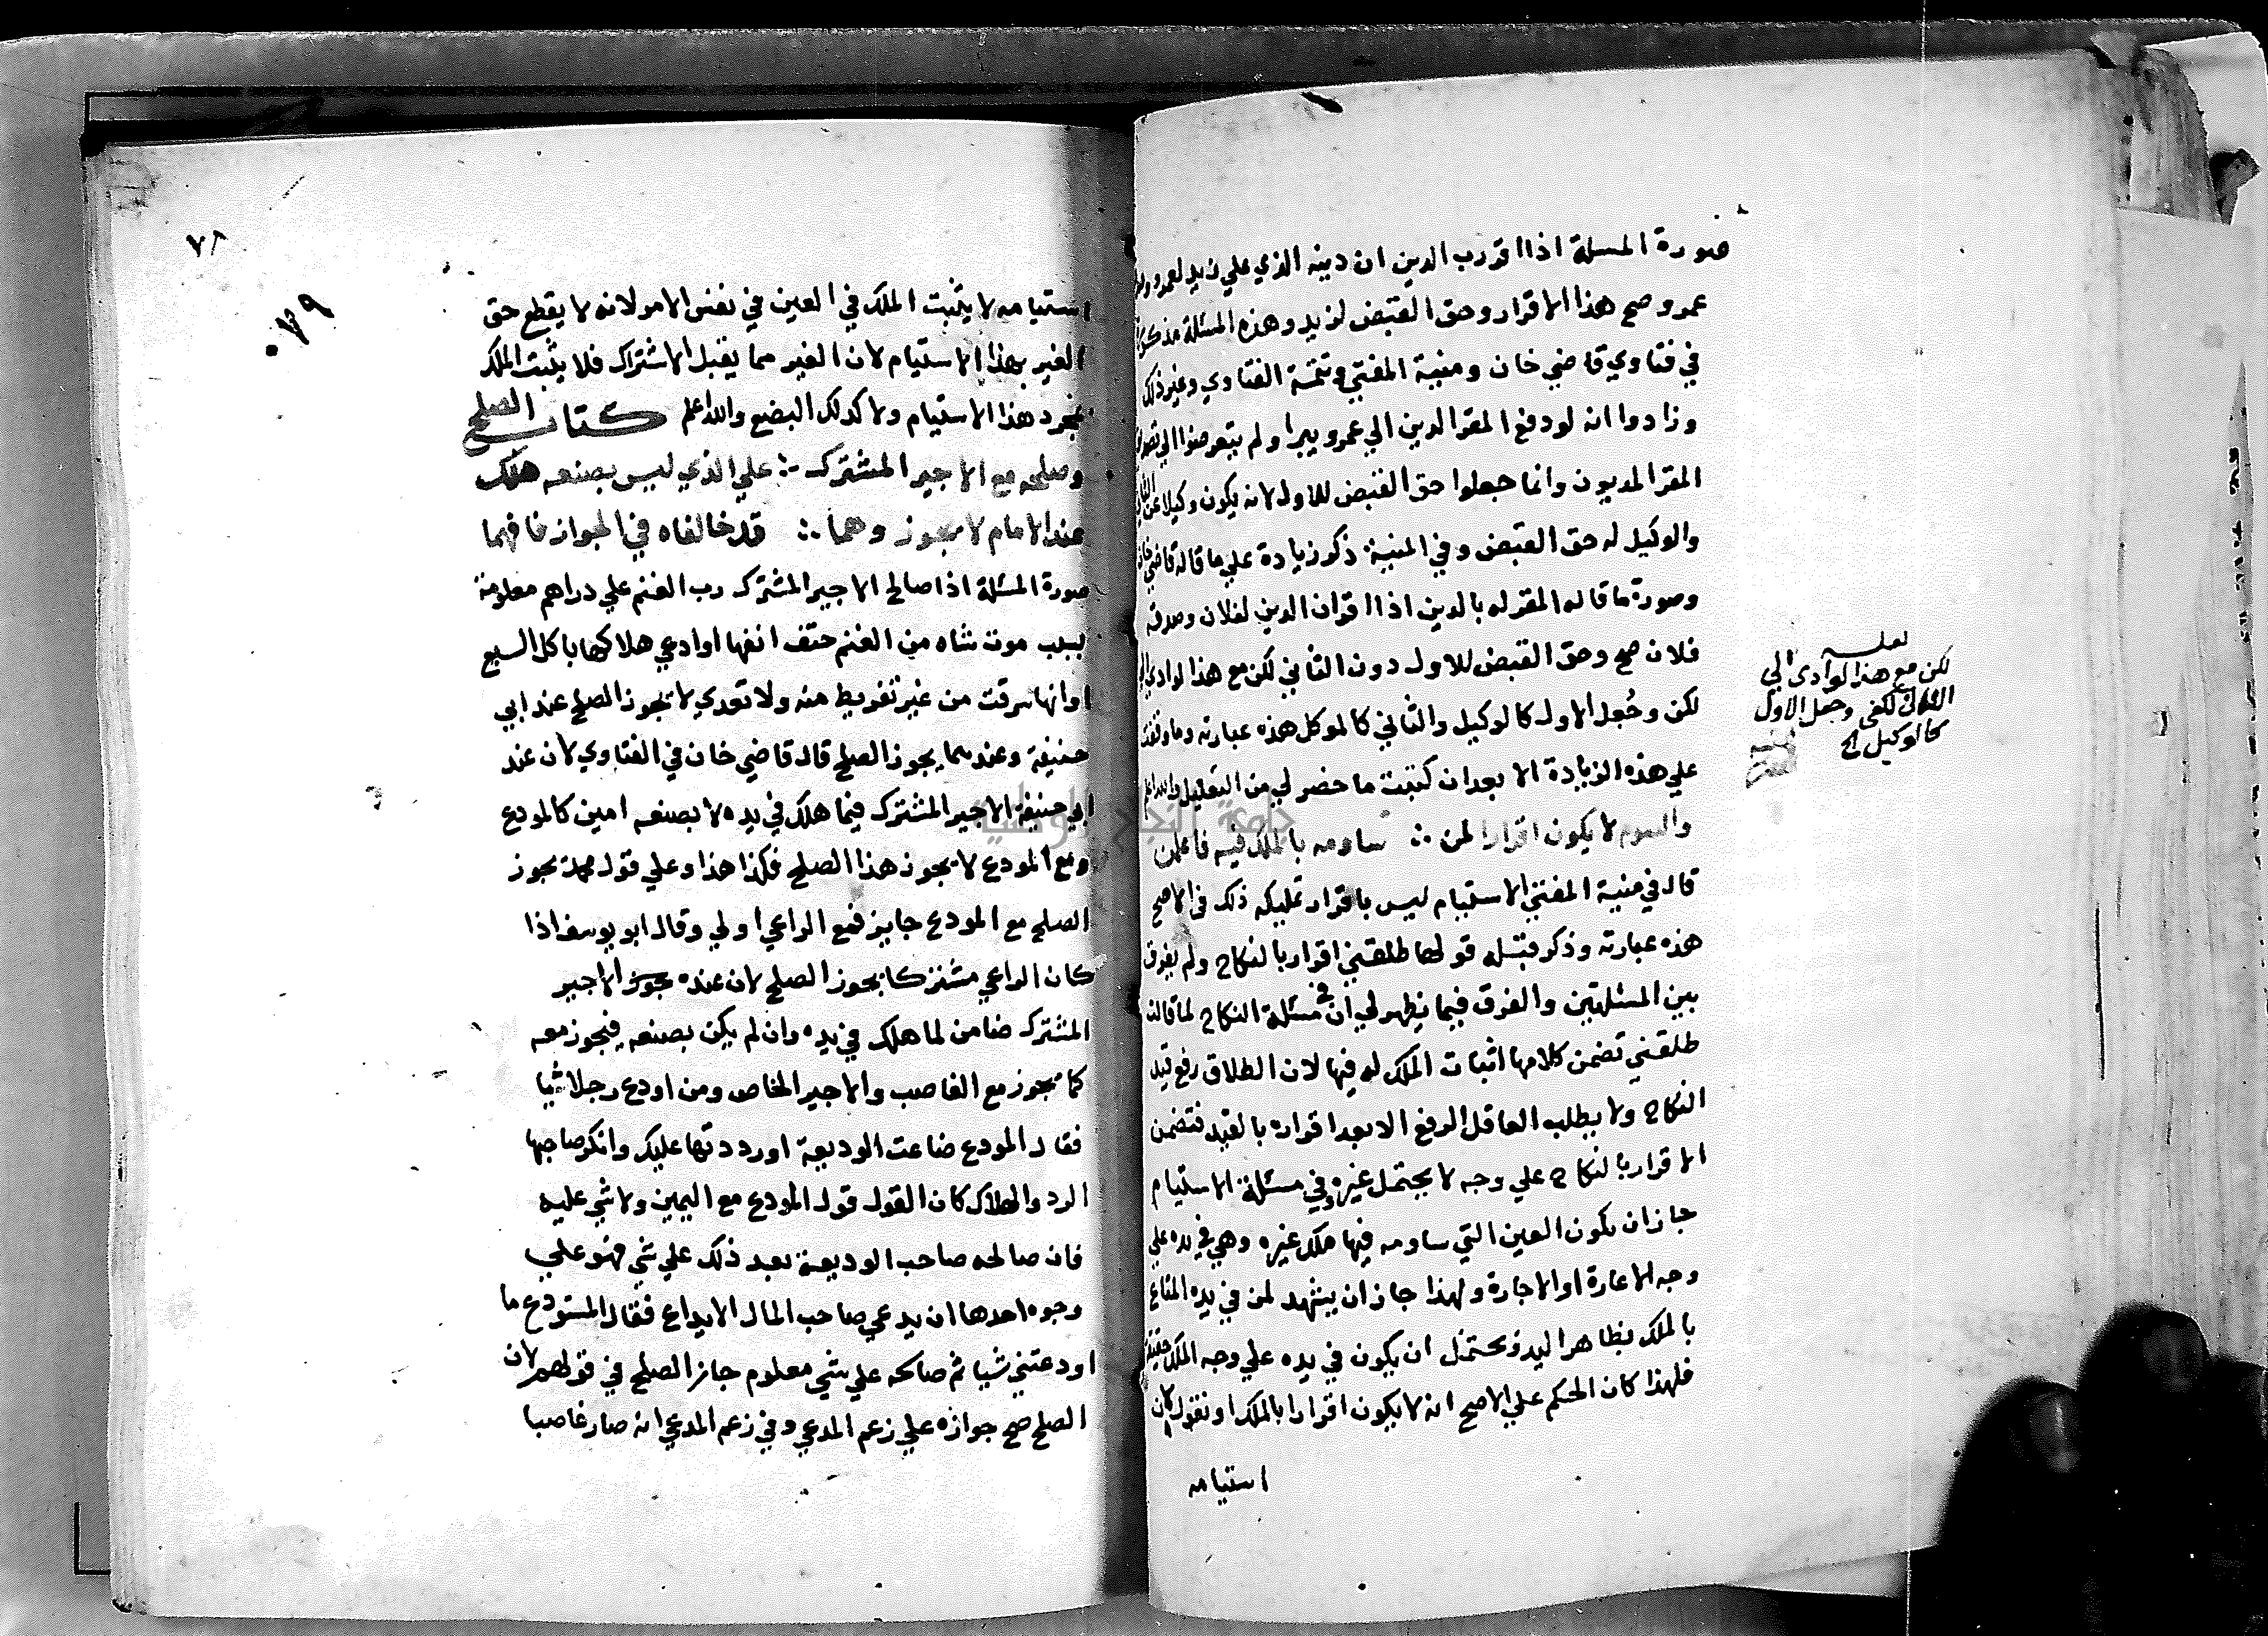 صورة المسلة اذا اقر رب الدين ان دينه الذي علي زيد لعمرو
عمرو صح هذا الاقرار وحق القبض لزيد وهذه المسئلة مذكورة
في فتاوي قاضي خان ومنية المفتي وتتمة الفتاوي وغير ذلك
وزادوا انه لو دفع المقر الدين الي عمرو يبرا ولم يتعرضوا الي
المقر المديون وانما جعلوا حق القبض للاول لانه يكون وكيلا عن
والوكيل له حق القبض وفي المنية ذكر زيادة علي ما قاله قاضي خان
وصورة ما قاله المقر له بالدين اذا اقر ان الدين لفلان وصدقه
فلان صح وحق القبض للاول دون الثاني لكن مع هذا لو ادي
لكن وجُعل الاول كالوكيل والثاني كالموكل هذه عبارته وما وقفت
علي هذه الزيادة الا بعد ان كتبت ما حضر لي من التعليل والله اعلم
والسوم لا يكون اقرارا لمن ∴ ساومه بالملك فيه فاعلمن
قال في منية المفتي الاستيام ليس باقرار تمليكه ذلك في الاصح
هذه عبارته وذكر قبله قولها طلقني اقرار بالنكاح ولم يفرق
بين المسئلتين والفرق فيما يظهر لي ان في مسئلة النكاح لما قالت
طلقني تضمن كلامها اثبات الملك له فيها لان الطلاق رفع قيد
النكاح ولا يطلب العاقل الرفع الا بعد اقراره بالقيد فتضمن
الاقرار بالنكاح علي وجه لا يحتمل غيره وفي مسئلة الاستيام
جاز ان يكون العين التي ساومه فيها ملك غيره وهي في يده علي
وجه الاعارة او الاجارة ولهذا جاز ان يشهد لمن في يده المتاع
بالملك بظاهر اليد فيحتمل ان يكون في يده علي وجه الملك حقيقة
فلهذا كان الحكم علي الاصح انه لا يكون اقرارا بالملك او نقول لان
استيامه
لعله
لكن مع هذا لو ادي الي
الثاني كفي وجعل الاول
كالوكيل الخ
٧٨
٠٧٩
استيامه لا يثبت الملك في العين في نفس الامر لانه لا يقطع حق
الغير بهذا الاستيام لان الغير مما يقبل الاشتراك فلا يثبت الملك
بمجرد هذا الاستيام ولا كذلك البضع والله اعلم كتاب الصلح
وصلحه مع الاجير المشترك ∴ علي الذي ليس بصنعه هلك
عند الامام لا يجوز وهما ∴ قد خالفاه في الجواز فافهما
صورة المسئلة اذا صالح الاجير المشترك رب الغنم علي دراهم معلومة
بسبب موت شاه من الغنم حتف انفها او ادعي هلاكها باكل السبع
او انها سرقت من غير تفريط منه ولا تعدي لا يجوز الصلح عند ابي
حنيفة وعندهما يجوز الصلح قال قاضي خان في الفتاوي لان عند
ابي حنيفة الاجير المشترك فيما هلك في يده لا بصنعه امين كالمودع
ومع المودع لا يجوز هذا الصلح فكذا هذا وعلي قول محمد يجوز
الصلح مع المودع جايز فمع الراعي اولي وقال ابو يوسف اذا
كان الراعي مشتركا يجوز الصلح لان عنده يجوز الاجير
المشترك ضامن لما هلك في يده وان لم يكن بصنعه فيجوز معه
كما يجوز مع الغاصب والاجير الخاص ومن اودع رجلا شيا
فقال المودع ضاعت الوديعة او رددتها عليك وانكر صاحبها
الرد والهلاك كان القول قول المودع مع اليمين ولا شي عليه
فان صالحه صاحب الوديعة بعد ذلك علي شي فهو علي
وجوه احدها ان يدعي صاحب المال الايداع فقال المستودع ما
اودعتني شيا ثم صالحه علي شي معلوم جاز الصلح في قولهم لان
الصلح صح جوازه علي زعم المدعي وفي زعم المدعي انه صار غاصبا
جامعة النجاح الوطنية